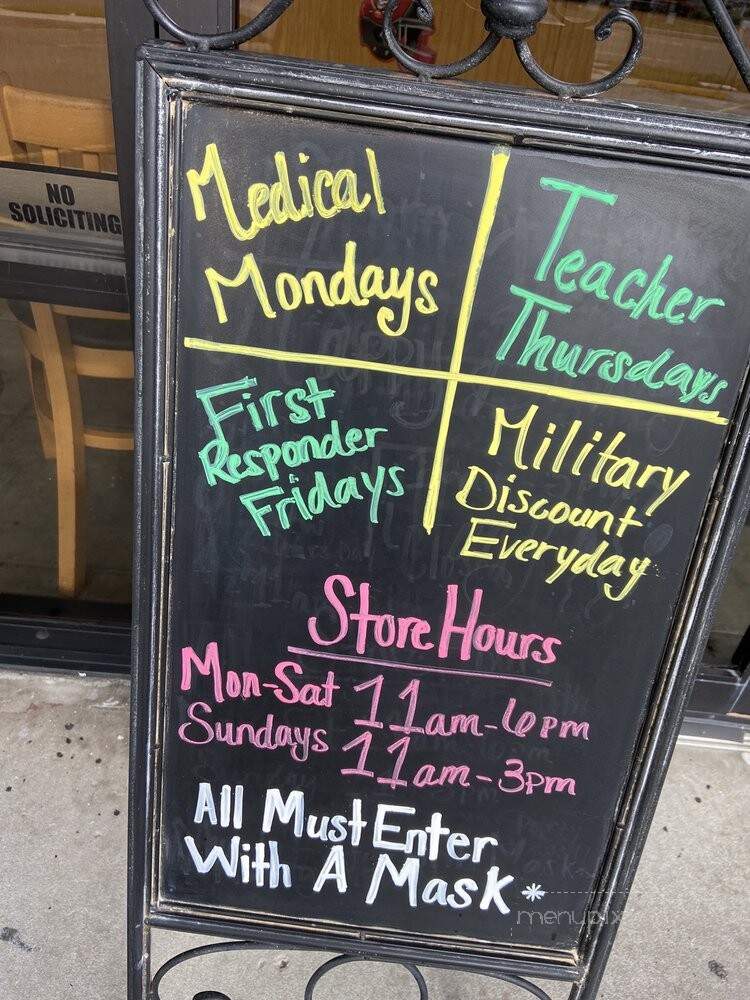 NO
SOLICITING
Medical
Mondays
Teacher
Thursdays
First
Responder
Fridays
Military
Discount
Everyday
Store Hours
Mon-Sat 11am-6pm
Sundays 11am-3pm
All Must Enter
With A Mask*
menupix